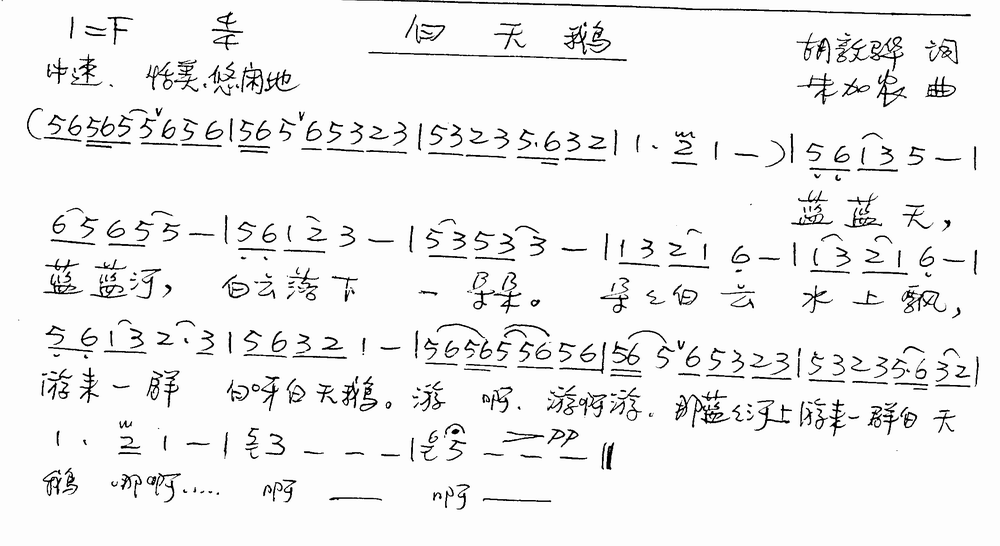 1=F 4/4 白天鹅 胡敦骅 词
中速、恬美、悠闲地 朱加农 曲
(565655ᵛ656|565ᵛ65323|53235.632|1.21-)|56135-|
蓝蓝天,
65655-|56123-|53533-|13216-|13216-|
蓝蓝河, 白云落下 一朵朵。 朵々白云 水上飘,
56132.3|56321-|5656556561|565ᵛ65323|53235.632|
游来一群 白呀白天鹅。游 啊、游啊游、那蓝々河上游来一群白天
1.21-|53---|65--- pp‖
鹅 哪啊…… 啊—— 啊——